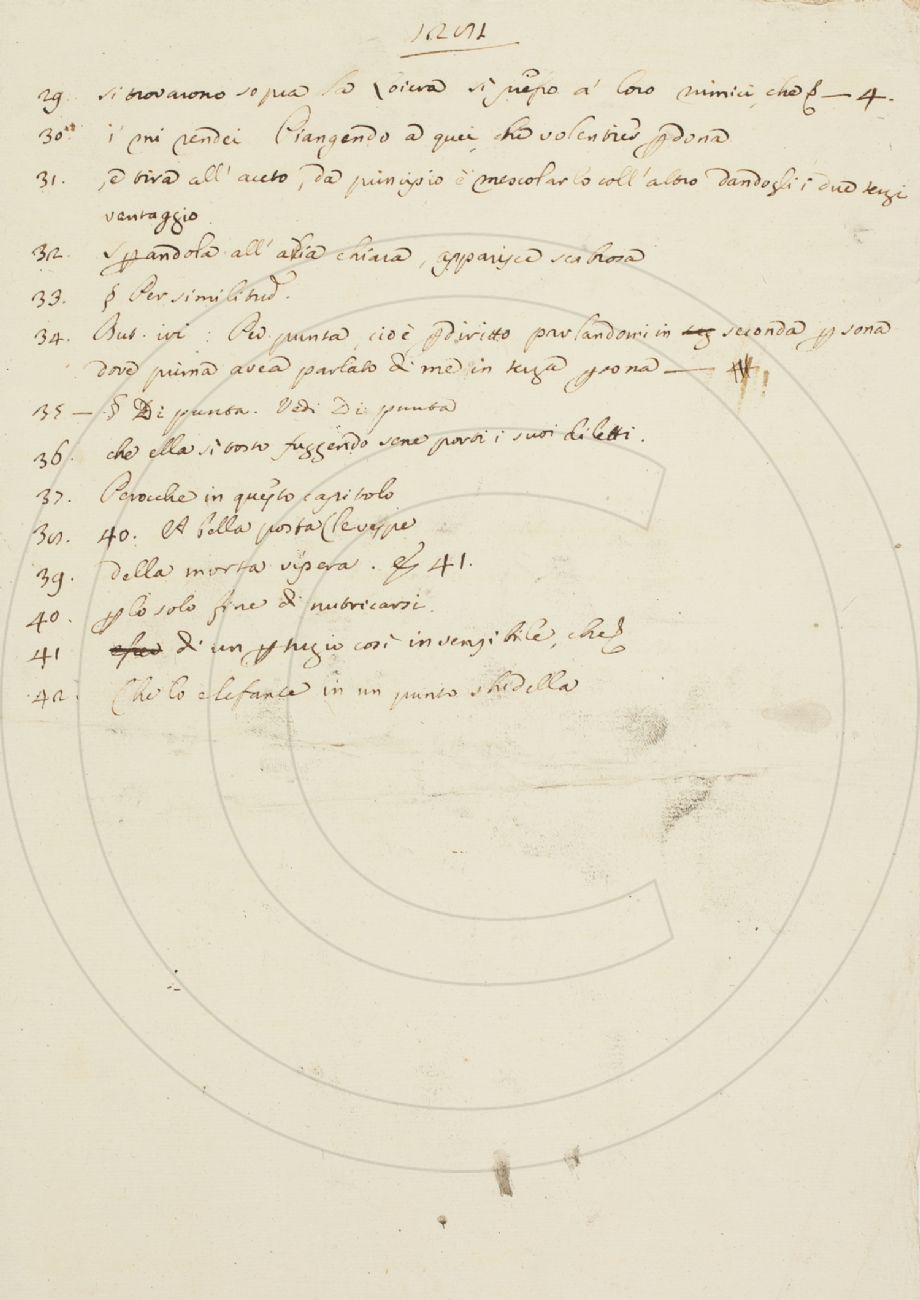 29. si trovarono sopra la Loiera si presso a' loro nimici, che § — 4.
30. i' mi rendei Piangendo a quei, che volentier pdona
31. , e tira all' aceto, da principio è mescolarlo coll' altro dandogli i due terzi
vantaggio
32. spandola all' aria chiara, apparisce scabrosa
33. § Per similitud.
34. But. ivi: Per punta, cioè, pdiritto parlandomi in seconda psona
dove prima avea parlato di me in terza psona —
35 — § Di punta. Vedi Di punta
36. che ella sì tosto fuggendo sene porti i suoi diletti.
37. Perocche in questo capitolo
38. 40. A bella posta le vespe
39. della morta vipera. 41.
40. plo solo fine di nutricarsi.
41 di un ptugio così insensibile, che
42. Che lo elefante in un punto shidella